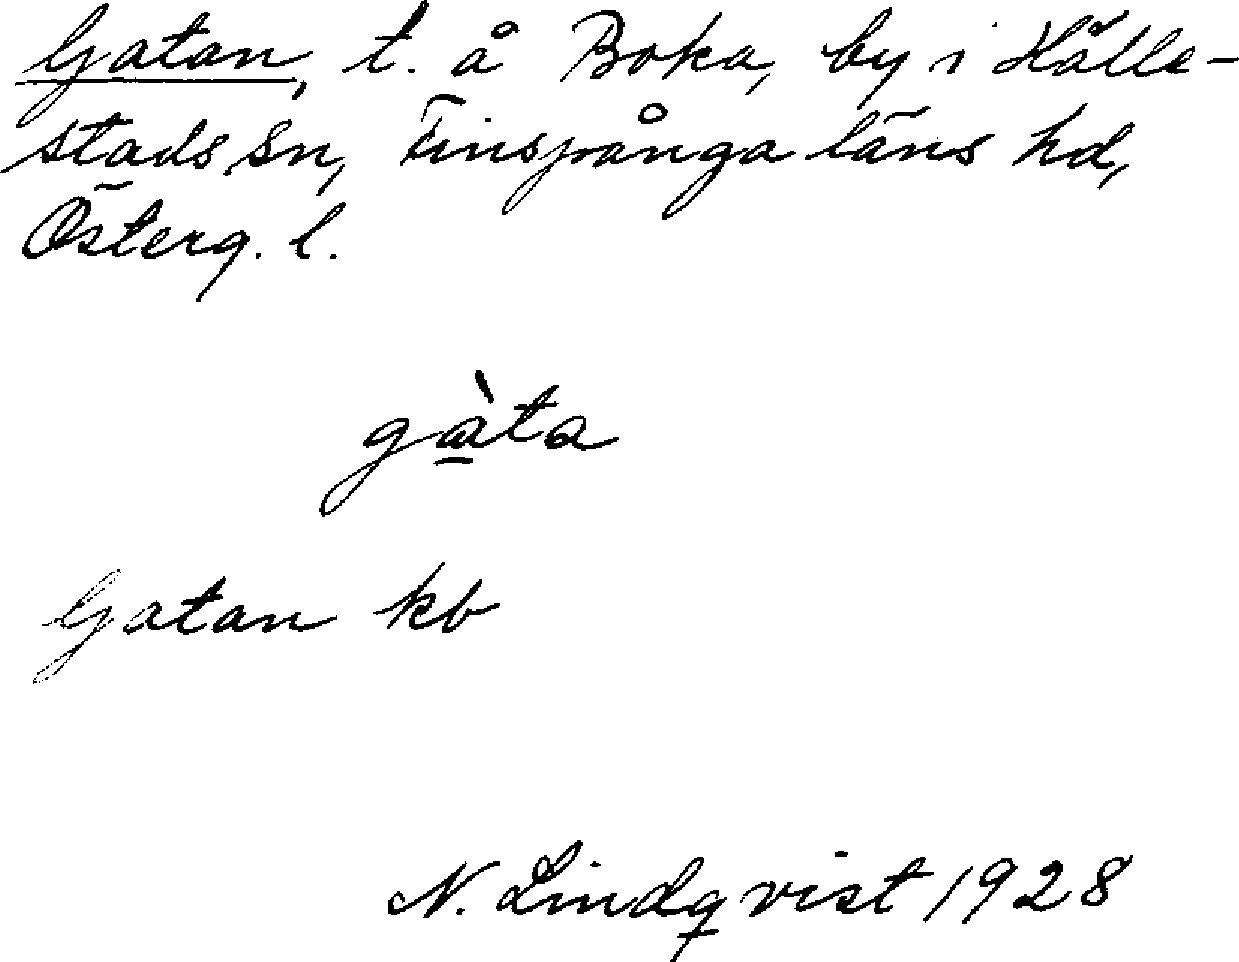 Gatan, t. å Boka, by i Hälle-
stads sn, Finspånga läns hd,
Österg. l.
gàta
Gatan kb
N. Lindqvist 1928